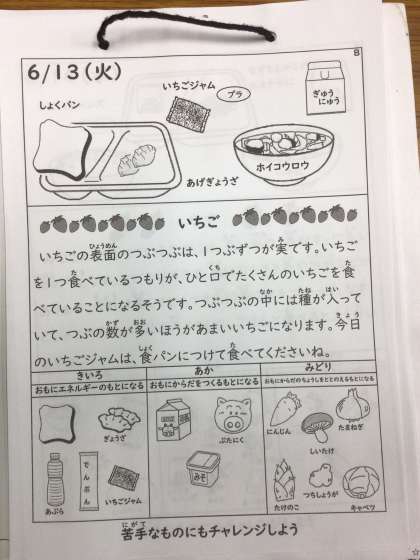 8
6/13(火)
いちごジャム
プラ
ぎゅう
にゅう
しょくパン
ホイコウロウ
あげぎょうざ
いちご
いちごの表面のつぶつぶは、1つぶずつが実です。いちご
を1つ食べているつもりが、ひと口でたくさんのいちごを食
べていることになるそうです。つぶつぶの中には種が入って
いて、つぶの数が多いほうがあまいいちごになります。今日
のいちごジャムは、食パンにつけて食べてくださいね。
きいろ
あか
みどり
おもにエネルギーのもとになる
おもにからだをつくるもとになる
おもにからだのちょうしをととのえるもとになる
ぎょうざ
ぶたにく
にんじん
しいたけ
たまねぎ
あぶら
でんぷん
いちごジャム
みそ
たけのこ
つちしょうが
キャベツ
苦手なものにもチャレンジしよう